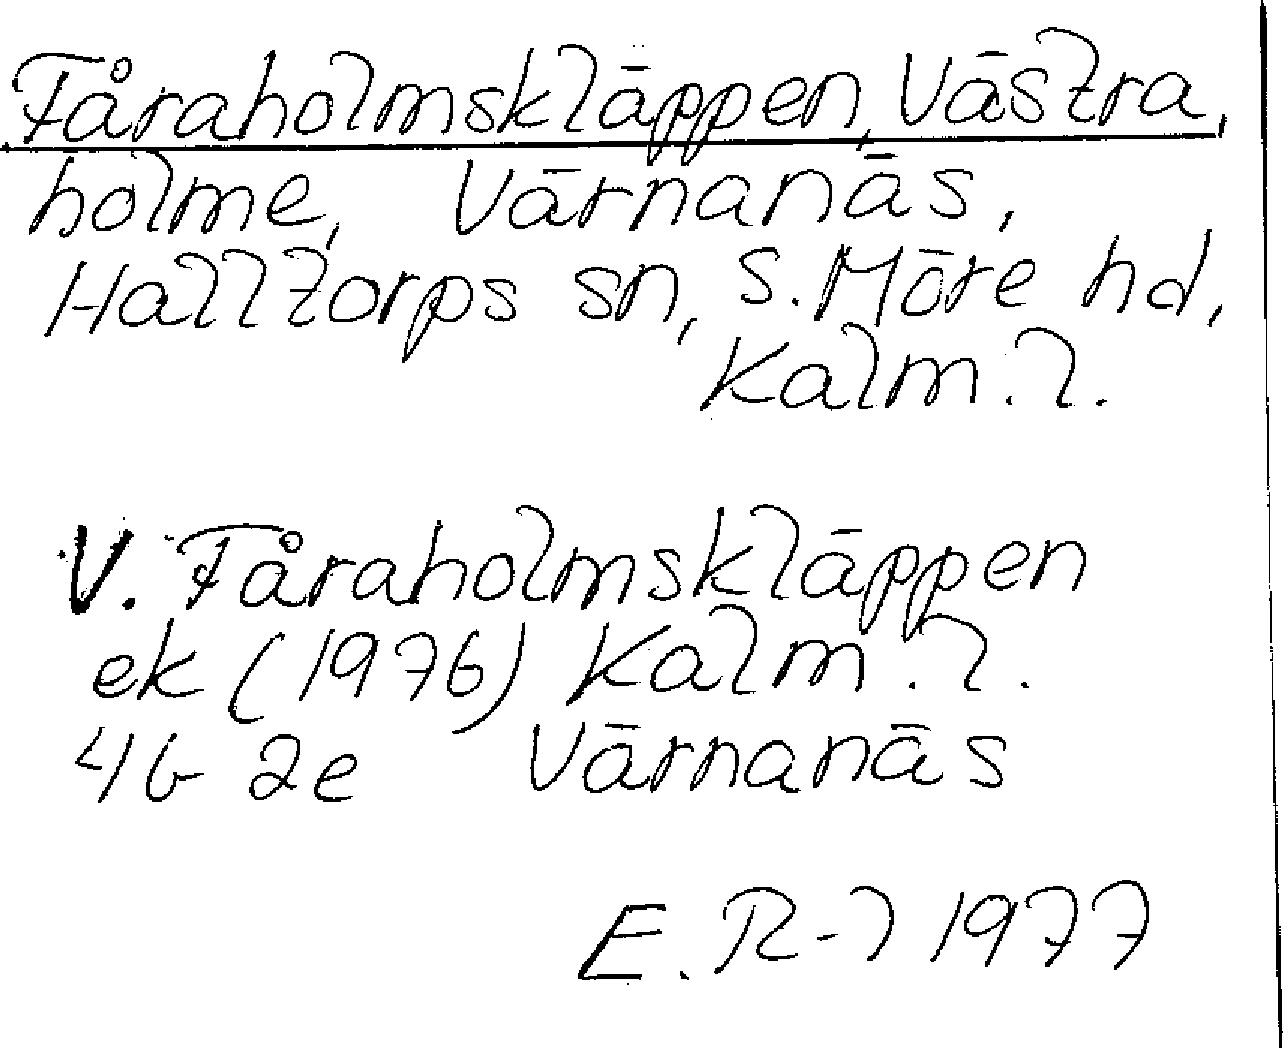 Fåraholmskläppen, Västra,
holme, Värnanäs,
Halltorps sn, S. Möre hd,
Kalm. l.
V. Fåraholmskläppen
ek (1976) Kalm. l.
4G 2e Värnanäs
E. R-l 1977